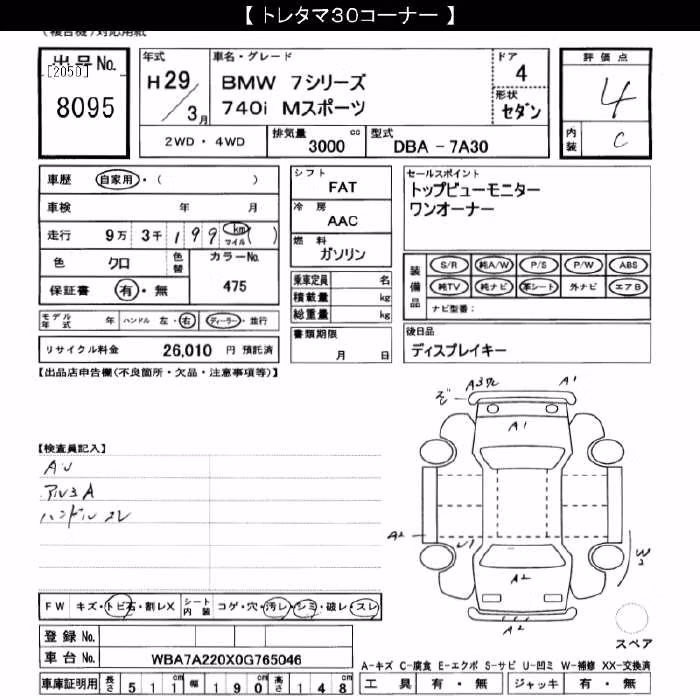 【 トレタマ30コーナー 】
(複合機)対応用紙
出品No.
[2050]
8095
年式
H 29 / 3月
車名・グレード
BMW 7シリーズ
740i Mスポーツ
ドア
4
形状
セダン
評価点
4
内装
C
2WD・4WD
排気量 3000 cc
型式 DBA - 7A30
車歴 自家用・( )
車検 年 月
走行 9万 3千 199 km マイル ( )
色 クロ 色替 カラーNo.
475
保証書 有・無
モデル年式 年 ハンドル 左・右 ディーラー・並行
リサイクル料金 26,010 円 預託済
シフト
FAT
冷房
AAC
燃料
ガソリン
乗車定員 名
積載量 kg
総重量 kg
書類期限
月 日
セールスポイント
トップビューモニター
ワンオーナー
装備品
S/R 純A/W P/S P/W ABS
純TV 純ナビ 革シート 外ナビ エアB
ナビ型番:
後日品
ディスプレイキー
【出品店申告欄(不良箇所・欠品・注意事項等)】
【検査員記入】
AU
アルミA
ハンドルスレ
A1
A1
A2
U1
W2
A2
A2
スペア
FW キズ・トビ石・割レX シート内装 コゲ・穴・汚レ・シミ・破レ・スレ
登録No.
車台No. WBA7A220X0G765046
車庫証明用 長さ 511cm 幅 190cm 高さ 148cm
A-キズ C-腐食 E-エクボ S-サビ U-凹ミ W-補修 XX-交換済
工具 有・無 ジャッキ 有・無